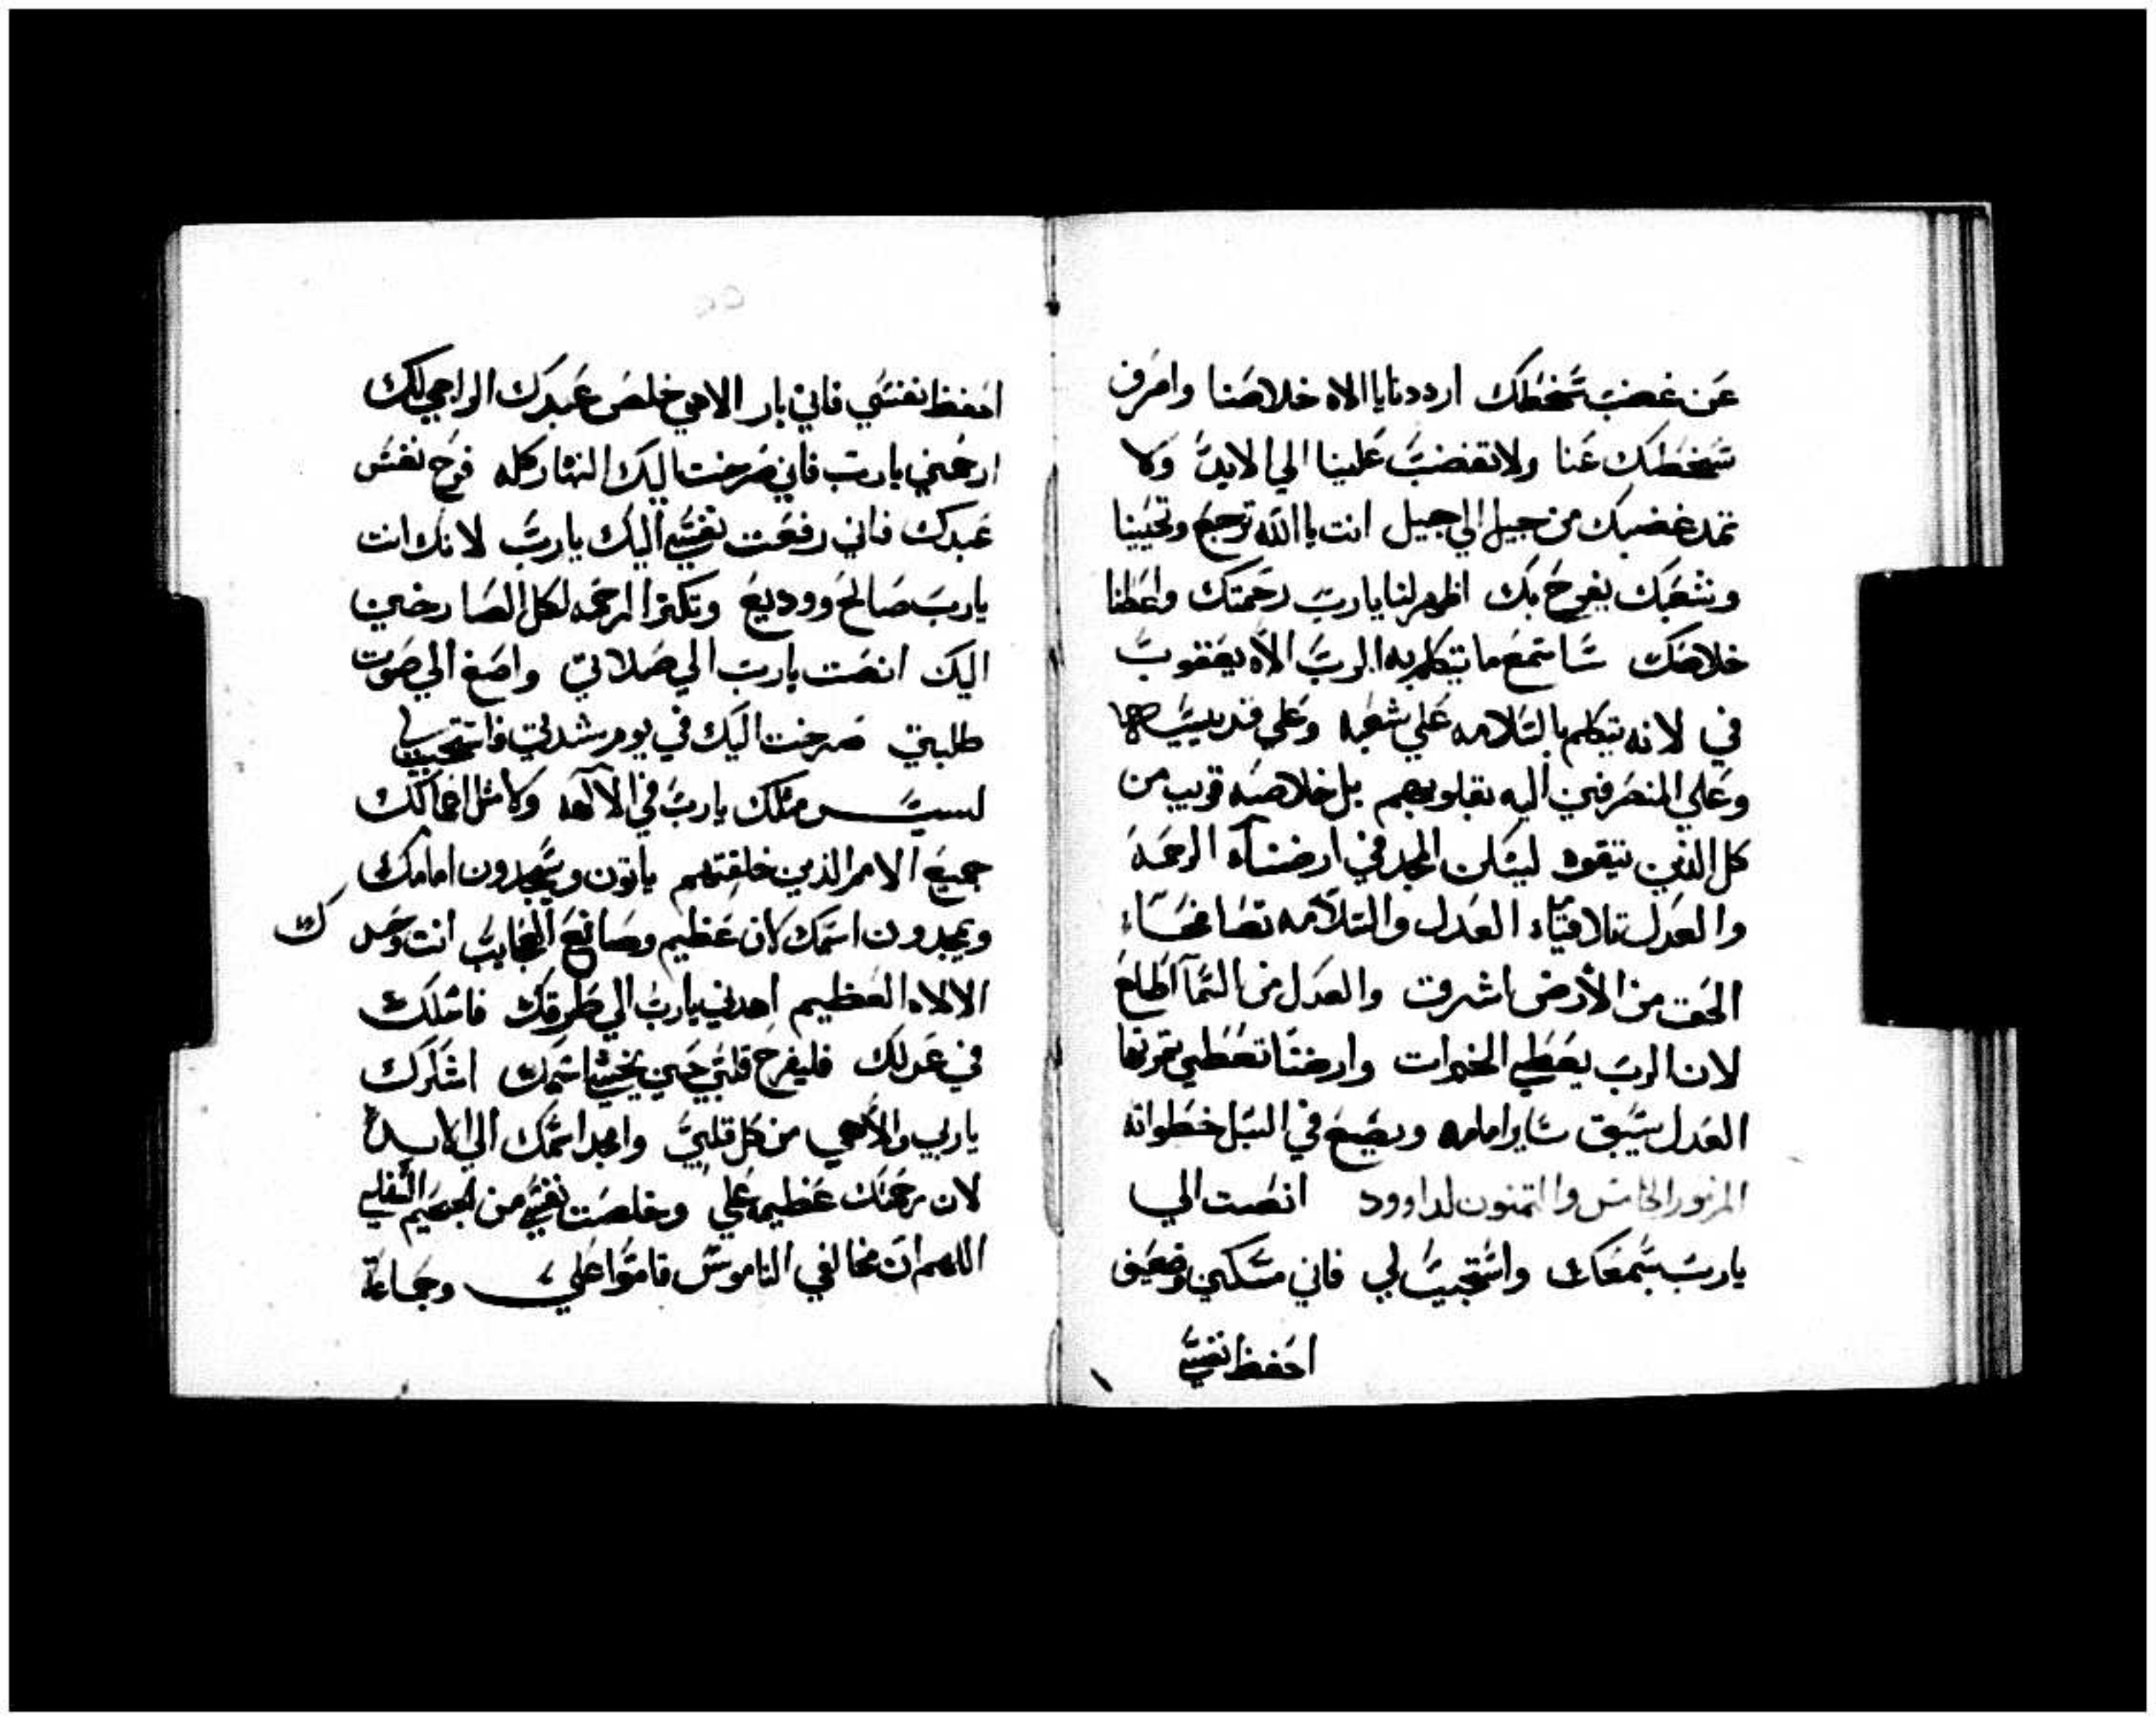 عن غضب سخطك ارددنا ياالاه خلاصنا واصرف
سخطك عنا ولا تغضب علينا الي الابد ولا
تمد غضبك من جيل الي جيل انت ياالله ترجع وتحيينا
وشعبك يفرح بك اظهر لنا يارب رحمتك واعطنا
خلاصك ساستمع ما يتكلم به الرب الاه يعقوب
في لانه يتكلم بالسلامه علي شعبه وعلي قديسيه
وعلي المنصرفين اليه بقلوبهم بل خلاصه قريب من
كل الذين يتقوه ليسكن المجد في ارضنا الرحمة
والعدل تلاقياء العدل والسلامه تصافحاء
الحق من الأرض اشرق والعدل من السما اطلع
لان الرب يعطي الخيرات وارضنا تعطي ثمرتها
العدل يسبق ساير امامه ويضع في السبل خطواته
المزمور الخامس والثمنون لداوود انصت الي
يارب بسمعك واستجيب لي فاني مسكين وضعيف
احفظ نفسي
احفظ نفسي فاني بار الاهي خلص عبدك الراجي لك
ارحمني يارب فاني صرخت اليك النهار كله فرح نفس
عبدك فاني رفعت نفسي اليك يارب لانك انت
يارب صالح ووديع وتكثر الرحمه لكل الصارخين
اليك انصت يارب الي صلاتي واصغ الي صوت
طلبتي صرخت اليك في يوم شدتي فاستجيب لي
ليس مثلك يارب في الآلهه ولا مثل اعمالك
جميع الامم الذين خلقتهم ياتون ويسجدون امامك
ويمجدون اسمك لان عظيم وصانع العجايب انت وحدك
الالاه العظيم اهدني يارب الي طرقك فاسلك
في عدلك فليفرح قلبي حين يخشا اسمك اشكرك
ياربي والاهي من كل قلبي وامجد اسمك الي الابد
لان رحمتك عظيمه علي وخلصت نفسي من الجحيم السفلي
اللهم ان مخالفي الناموس قاموا علي وجماعة